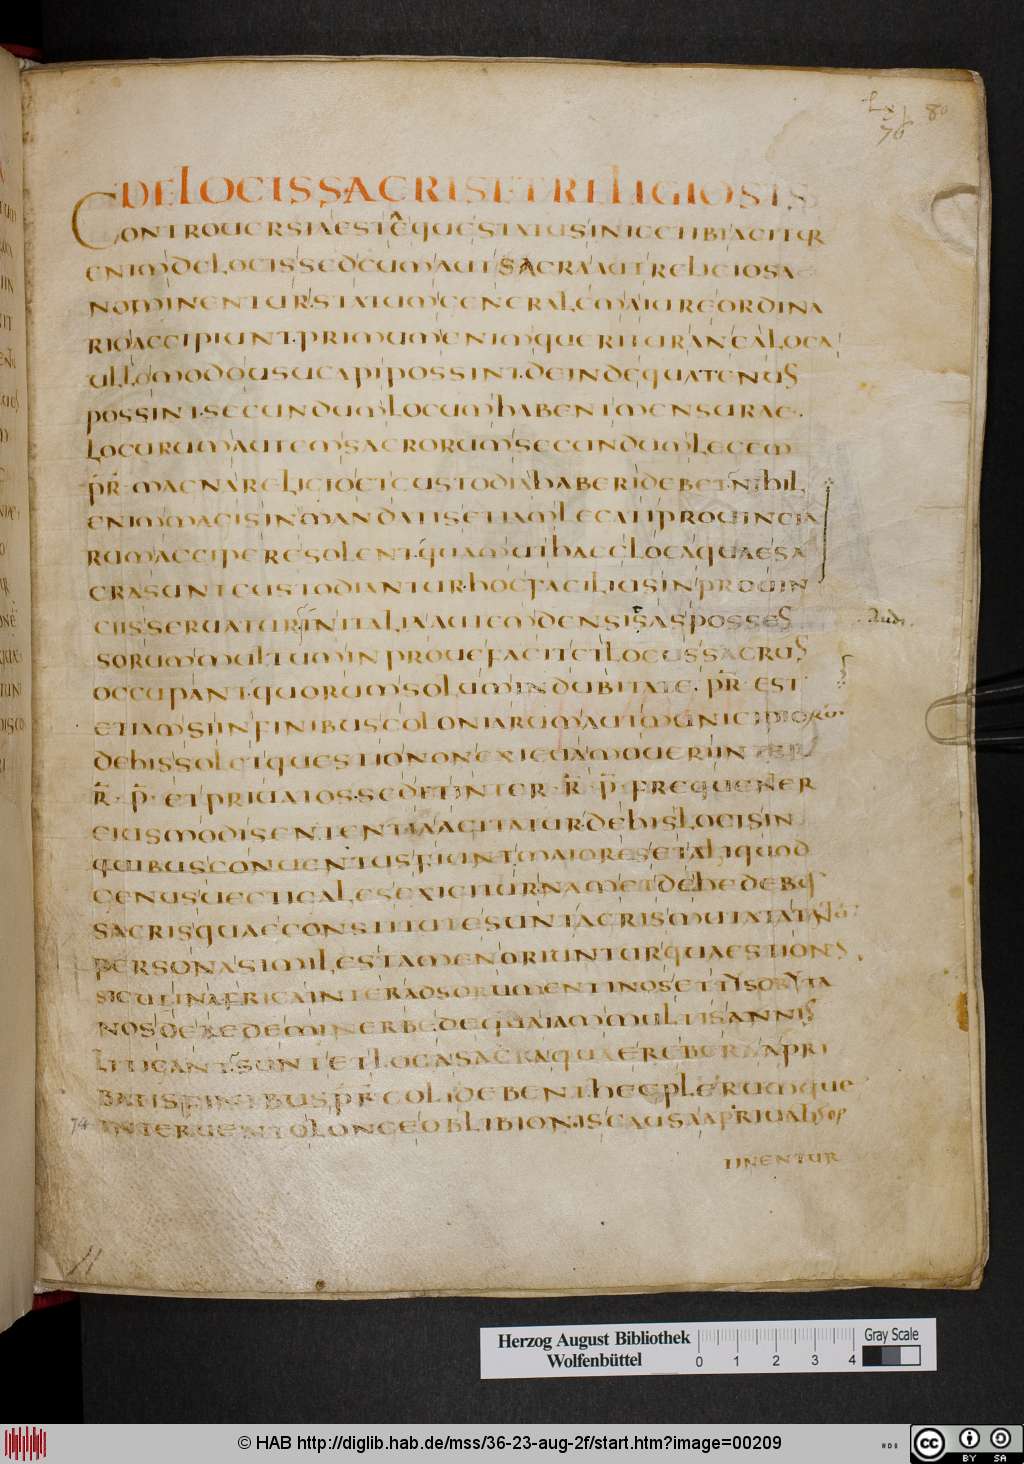 80
76
DELOCISSACRISETRELIGIOSIS
CONTROUERSIAESTEQUESTATUSINIECTIBIACITQR
ENIMDELOCISSEDCUMAUTSACRAAUTRELIGIOSA
NOMINENTURSTATUMGENERALEMAIUREORDINA
RIOACCIPIUNT·PRIMUMENIMQUERITURANEALOCA
ULLOMODOUSUCAPIPOSSINT·DEINDEQUATENUS
POSSINT·SECUNDUMLOCUMHABENTMENSURAE·
LOCURUMAUTEMSACRORUMSECUNDUMLEGEM
P̄R̄·MAGNARELIGIOETCUSTODIAHABERIDEBETN̄IHIL
ENIMMAGISINMANDATISETIAMLEGATIPROUINCIA
RUMACCIPERESOLENT·QUAMUTHAECLOCAQUAESA
CRASUNTCUSTODIANTUR·HOCFACILIUSINPROUIN
CIISSERUATURINITALIAAUTEMDENSISASPOSSES
SORUMMULTUMINPROUEFACITETLOCUSSACRUS
OCCUPANT·QUORUMSOLUMINDUBITATE·P̄R̄·EST
ETIAMSIINFINIBUSCOLONIARUMAUTMUNICIPIORUM
DEHISSOLETQUESTIONONEXIGUAMOUERIINTER
R̄·P̄·ETPRIUATOS·SEDETINTER·R̄·P̄·FREQUENER
EIUSMODISENTENTIAAGITATUR·DEHISLOCISIN
QUIBUSCONUENTUSFIUNTMAIORESETALIQUOD
GENUSUECTIGALESEXIGITURNAMETDEHEDEBQS
SACRISQUAECONSTITUTESUNTACRISMUTXTATIN
PERSONASIMILESTAMENORIUNTURQUAESTIONS
SICUTINAFRICAINTERADSORUMENTINOSETTISORITA
NOSDEAEDEMINERBEDEQUAIAMMULTISANNIS
LITIGANT·SUNTETLOCASACRAQUAEREBERAAPRI
BATISFINIBUSP̄R̄COLIDEBENTHECPLERUMQUE
INTERUENTOLONGEOBLIBIONISCAUSAAPRIUATISOP
TINENTUR
74
11
Herzog August Bibliothek
Wolfenbüttel
0 1 2 3 4
Gray Scale
© HAB http://diglib.hab.de/mss/36-23-aug-2f/start.htm?image=00209
HAB
cc BY SA